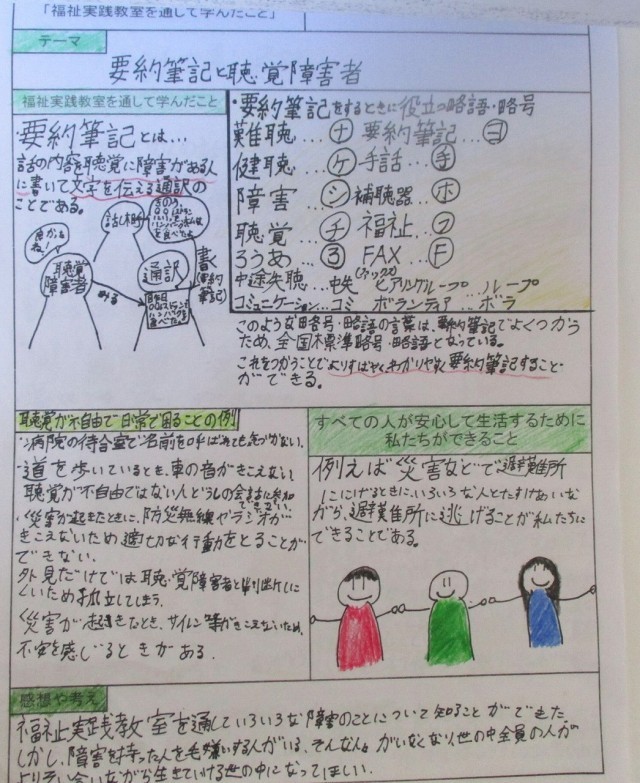 「福祉実践教室を通して学んだこと」
テーマ
要約筆記と聴覚障害者
福祉実践教室を通して学んだこと
・要約筆記とは…
話の内容を聴覚に障害がある人
に書いて文字を伝える通訳の
ことである。
話し相手
聴覚
障害者
みる
通訳
書く
(要約
筆記)
・要約筆記をするときに役立つ略語・略号
難聴…ナ 要約筆記…ヨ
健聴…ケ 手話…手
障害…シ 補聴器…ホ
聴覚…チ 福祉…フ
ろうあ…ろ FAX…F
中途失聴…中失 ヒアリングループ…ループ
コミュニケーション…コミ ボランティア…ボラ
このような略号・略語の言葉は、要約筆記でよくつかう
ため、全国標準略号・略語となっている。
これをつかうことでよりすばやくわかりやすく要約筆記すること
ができる。
聴覚が不自由で日常で困ることの例
・病院の待合室で名前を呼ばれても気づかない。
・道を歩いているとき、車の音がきこえない
・聴覚が不自由ではない人どうしの会話に参加
できない。
・災害が起きたときに、防災無線やラジオが
きこえないため適切な行動をとることが
できない。
外見だけでは聴覚障害者と判断しに
くいため孤立してしまう。
災害が起きたとき、サイレン等がきこえないため、
不安を感じるときがある。
すべての人が安心して生活するために
私たちができること
例えば災害などで避難所
ににげるときに、いろいろな人とたすけあいな
がら、避難所に逃げることが私たちに
できることである。
感想や考え
福祉実践教室を通していろいろな障害のことについて知ることができた
しかし、障害を持った人を毛嫌いする人がいる、そんな人がいなくなり、世の中全員の人が
よりそい合いながら生きていける世の中になってほしい。